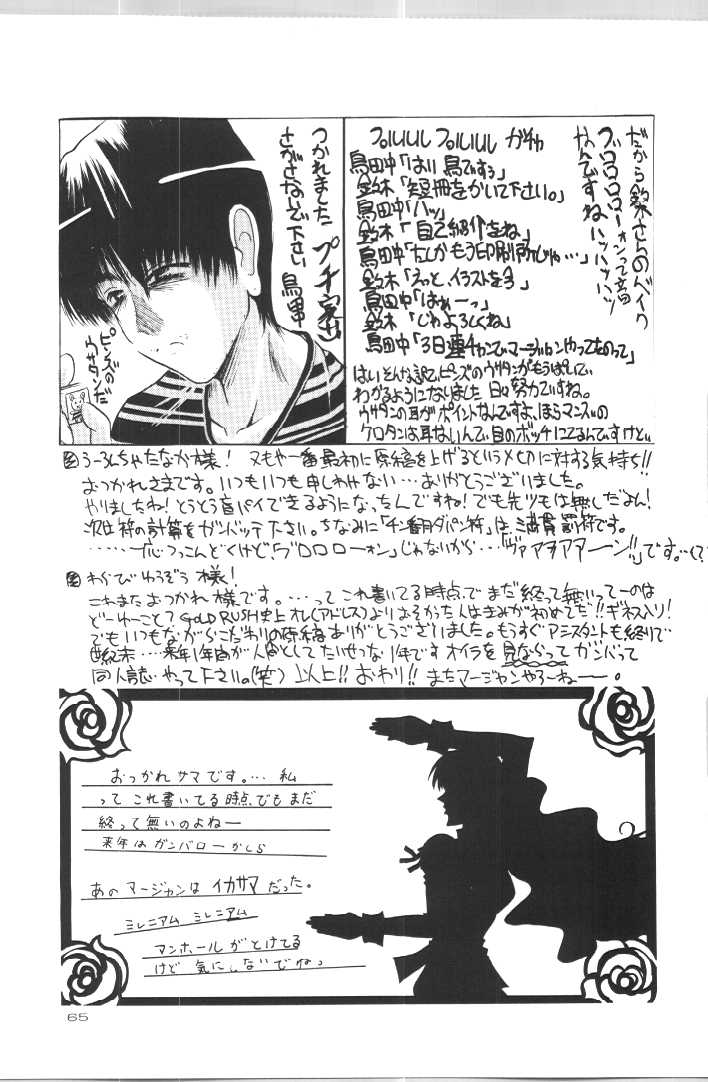 だから鈴木さんのバイク
ブロロロローォンって言
なんですねハッハッハッ
フルルルル フルルルル ガチャ
鳥田中「はい鳥ですぅ」
鈴木「短冊をかいて下さい。」
鳥田中「ハッ」
鈴木「自己紹介をね」
鳥田中「たしかもう印刷所じゃ…」
鈴木「えっと、イラストを今」
鳥田中「はぁーっ」
鈴木「じゃよろしくね」
鳥田中「3日連チャンでマージャンやってものって」
はいそんな訳でピンズのウサタンがもうぱいで
わかるようになりました 日々努力ですね。
ウサタンの耳がポイントなんですよ、ほらマンズの
ケロタンは耳ないんで目のボッチにてるんですけど、
つかれました プチ家出
さがさないで下さい 鳥田中
ピンズの
ウサタンだ
うーろんちゃたなか様! 又もや一番最初に原稿を上げるという に対する気持ち!!
おつかれさまです。いつもいつも申しわけない…ありがとうございました。
やりましたね!とうとう盲パイできるようになったんですね!でも先ツモは無しだよん!
次は符の計算をガンバッテ下さい。ちなみに「チン番月ダパン符」は満貫罰符です。
……で、つっこんどくけど、「ブロロローォン」じゃないから…「ヴァァヲァアーン!!」です。…(?
わらびゆうぞう様!
これまたおつかれ様です。…ってこれ書いてる時点でまだ終って無いってーのは
どーゆーこと?GOLD RUSH史上オレ(アドレス)よりおそかった人はきみが初めてだ!!ギネス入り!
でもいつもながらこだわりの原稿ありがとうございました。もうすぐアシスタントも終りで
世紀末…来年1年間が人間としてたいせつな1年です オイラを見ならってガンバって
同人誌やって下さい。(笑)以上!!おわり!!またマージャンやろーねーー。
おつかれサマです。… 私
ってこれ書いてる時点でもまだ
終って無いのよねー
来年はガンバローかしら
あのマージャンはイカサマだった。
ミレニアム ミレニアム
マンホールがとけてる
けど気にしないでねっ
65